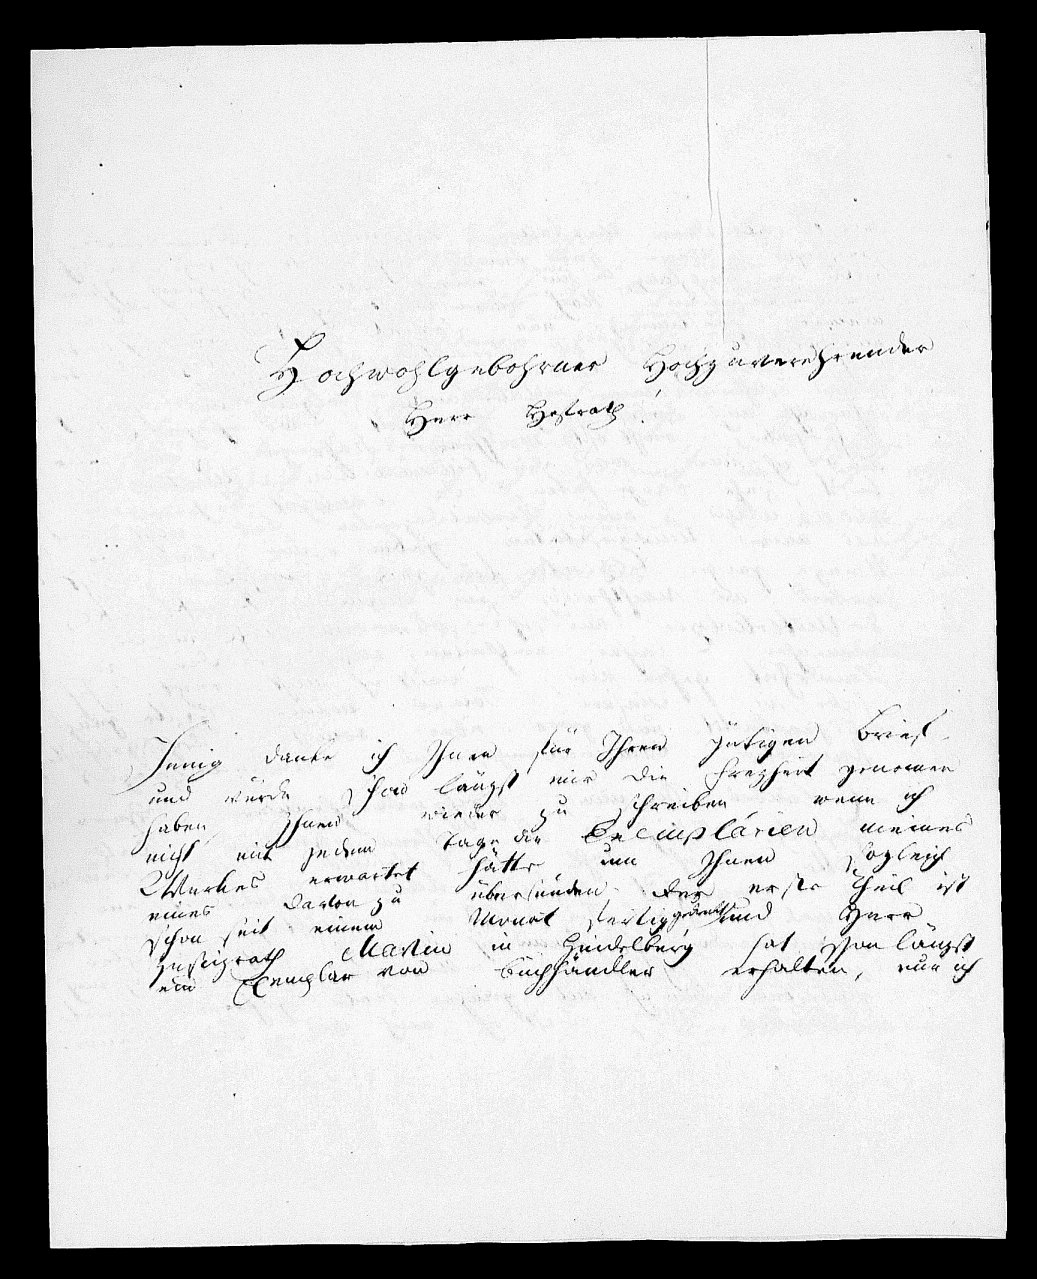 Hochwohlgebohrner Hochzuverehrender
Herr Hofrath!
Innig danke ich Ihnen für Ihren gütigen Brief
und würde schon längst mir die Freyheit genomen
haben, Ihnen wieder zu schreiben wenn ich
nicht mit jedem Tage die Exemplärien meines
Werkes erwartet hätte um Ihnen sogleich
eines davon zu übersenden. Der erste Theil ist
schon seit einem Monat fertig gedruckt und Herr
Justizrath Martin in Heidelberg hat schon längst
ein Exemplar von Buchhändler erhalten, nur ich